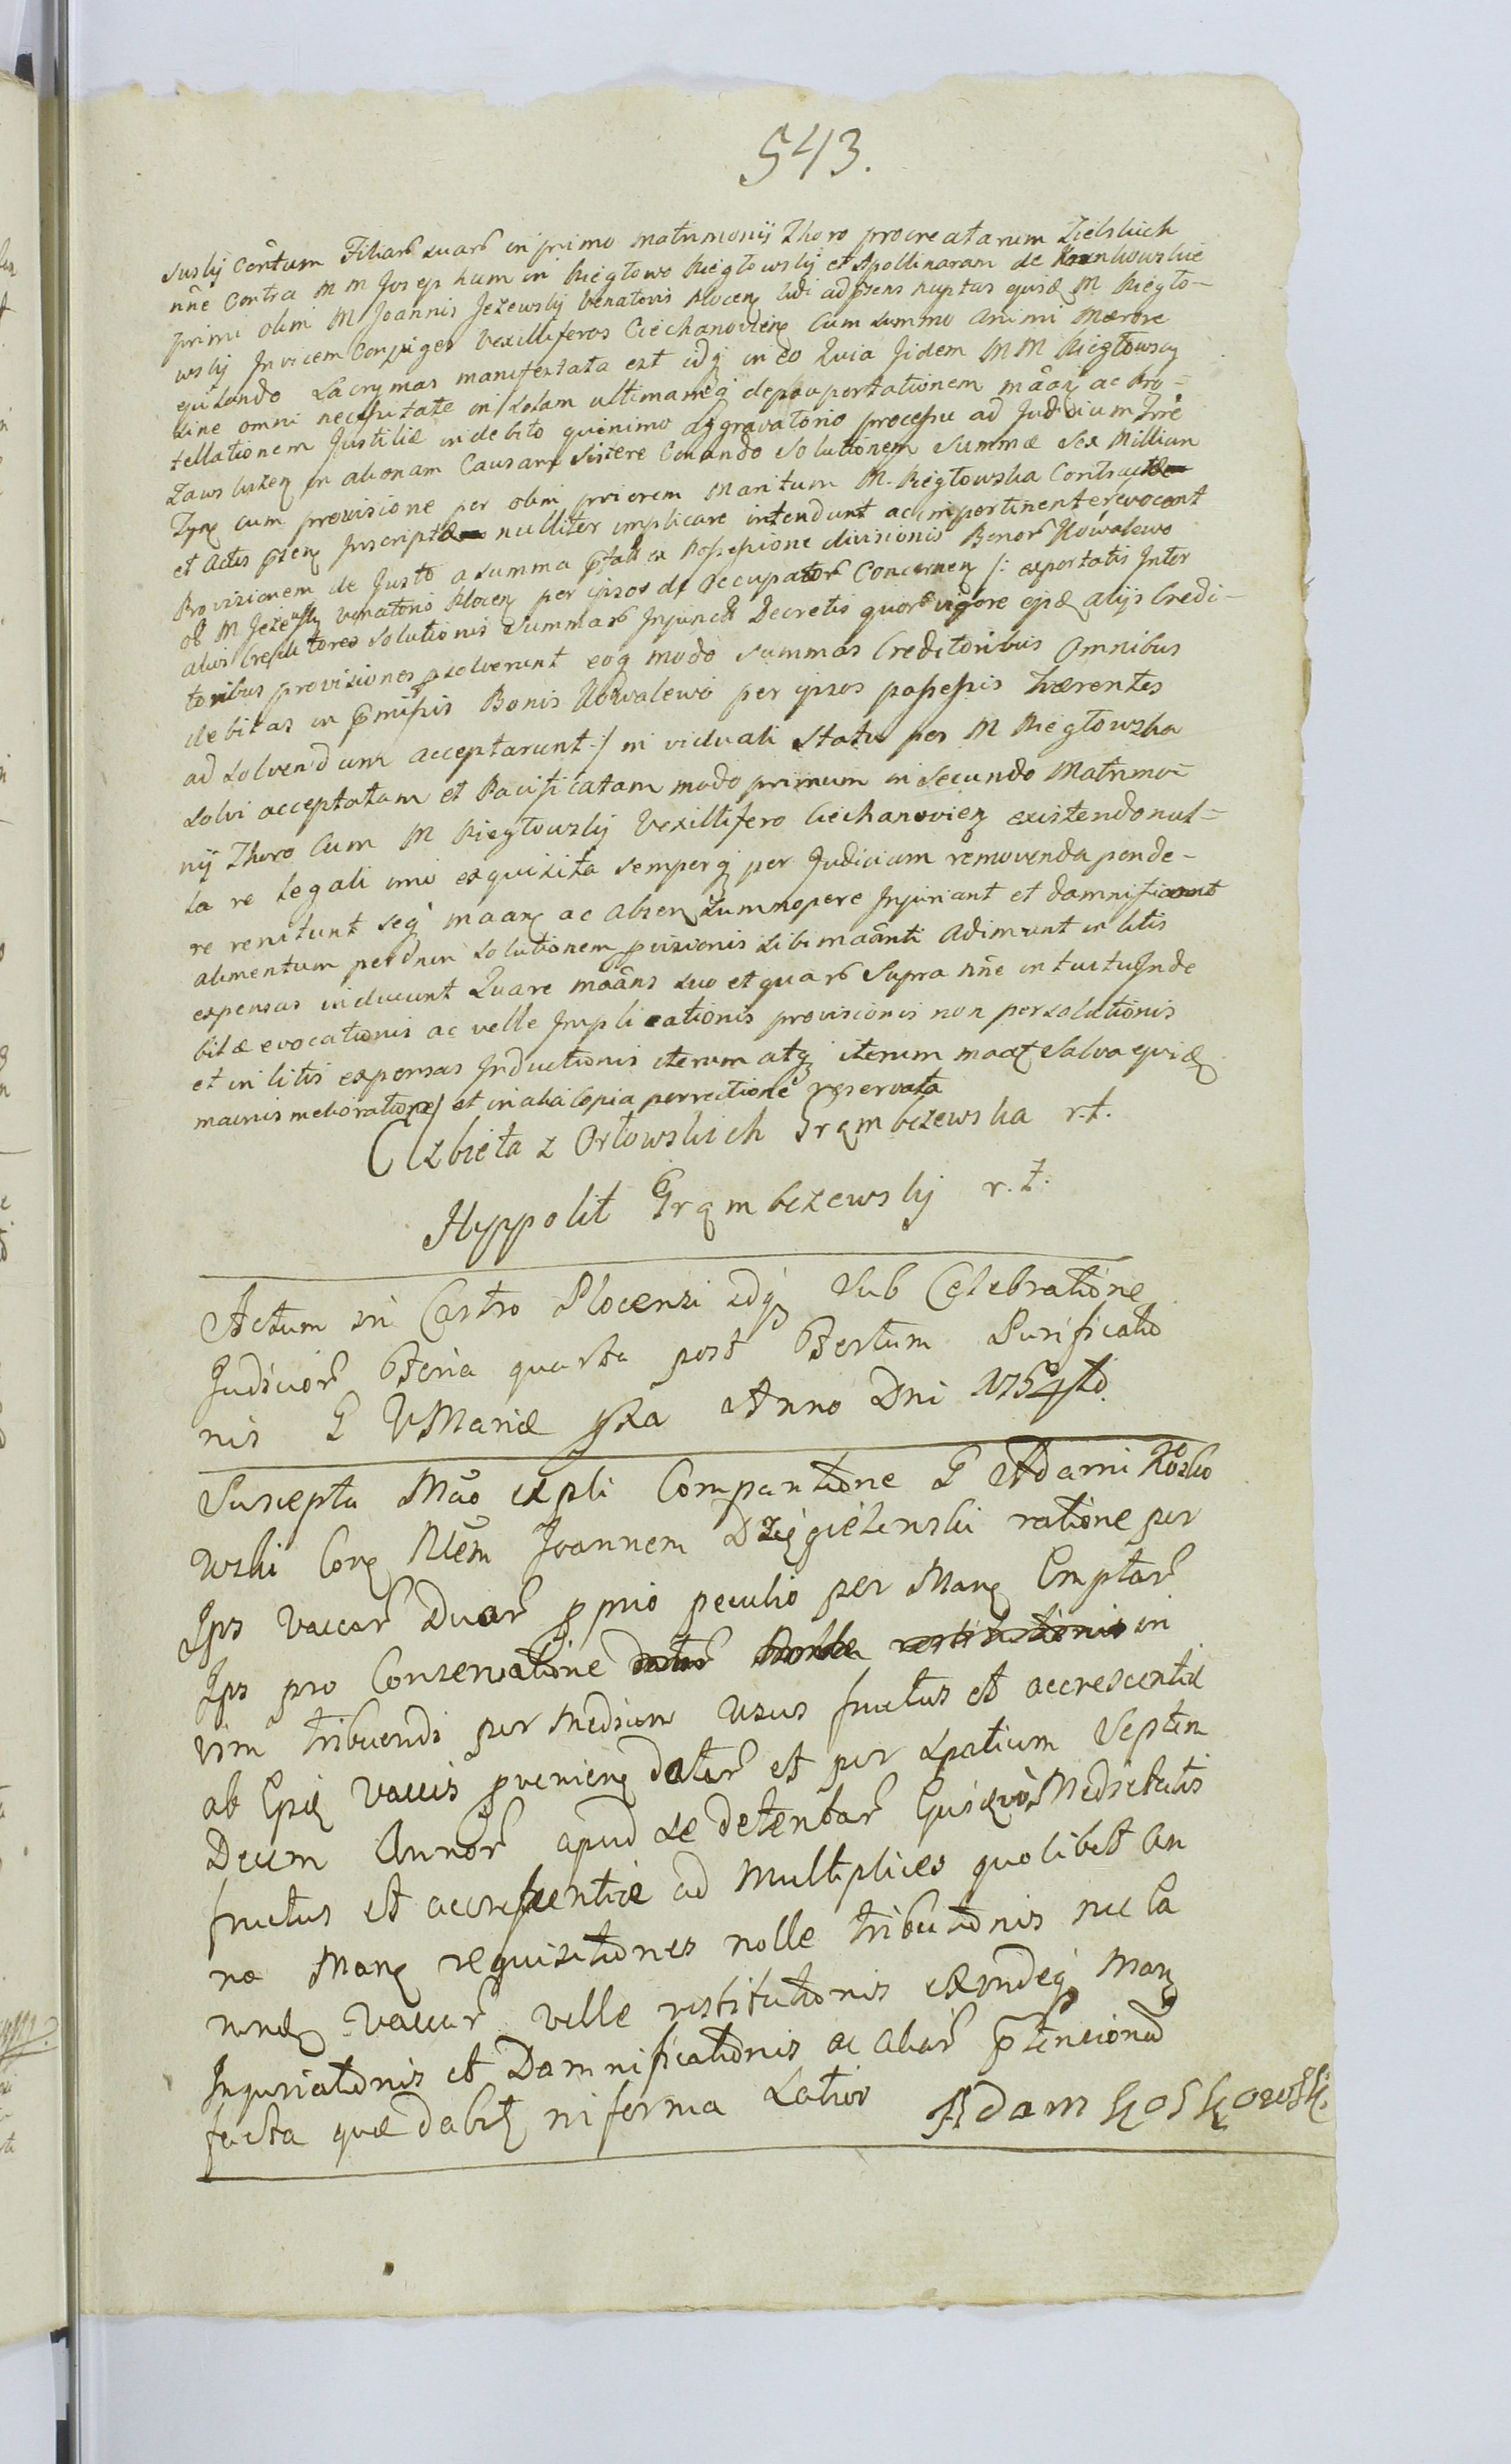 543.
suskij Centum Filiar suar in primo Matrimonij Thoro procreatarum Zielskich
nne Contra M M Josephum in Kiegłowo Kiegłowskij et Apollinaram de
primi olim M Joannis Jeżewskij Venatoris Plocen ad psens nuptas ejusq M Kiegło-
wskij Invicem Conjuges Vexilliferos Ciechanovien Cum summo animi Mærore
ejulando Lacrymas manifestata est idq in eo Quia Jidem M M Kiegłowscy
sine omni necessitate in solam ultimamq depauportationem maan ac Pro-
tellationem Justitiæ indebito quinimo Aggravatorio processu ad Judicium
in alionam Causam sistere Conando solutionem summæ sex Millium
cum provisione per olim priorem Maritum M. Kiegłowska
et Actis psen nulliter implicare intendunt ac impertinenter evocant
Provisionem de Justo a summa ex Possessione divisionis Bonor Kowalewo
ob M Jeżewskij Venatoris Plocen per ipsos de Occupator Concernen /: exportatis Inter
alios Creditores solutionis Summar Injunctis Decretis quor vigore ejsq alijs Credi-
toribus provisiones psolverunt eoq modo summas Creditoribus Omnibus
debitas in pmissis Bonis Kowalewo per ipsos possessis hærentes
ad solvendum acceptarunt :/ in viduali statu per M Kiegłowska
solvi acceptatam et Pacificatam modo primum in secundo Matrimo-
nij Thoro Cum M Kiegłowskij Vexillifero Ciechanovien existendo nul-
la re legali imo exquisita semperq per Judicium removenda pende-
re renitunt seq maan ac Absen summopere Injuriant et damnificant
alimentum per non solutionem pvisionis sibi maanti Adimunt in litis
expensas inducunt Quare maans suo et quar Supra nne intuitu Inde
bitæ evocationis ac velle Implicationis provisionis non persolutionis
et in litis expensas Inductionis iterum atq iterum maat Salva ejusq
maenis melioratione / et in alia copia porrectione reservata
Elzbieta z Orłowskich Grąmbczewska r.t.
Hyppolit Grąmbczewskij r.t.
Actum in Castro Plocensi Idq Sub Celebratione
Judicior Feria quarta post Festum Purificatio
nis G V Mariæ pxa Anno Dni 1754to.
Suscepta Mão expli Comparitione G Adami Kosko
wski Corq Nlem Joannem Dzięgielenski ratione per
Ips Vaccar Duar pprio peculio per Manq Emptar
Ips pro Conservatione in
vim tribuendi per Medium Usus fructus et accrescentiæ
ab Epiq Vaccis pvenienq Datar et per spatium Septem
Decem Annor apud se detentar Ejusque Medietatis
fructus et accrescentiæ ad Multiplices quolibet An
no Manq requisitiones nolle tributionis nec ea
rundq Vaccar velle restitutionis exindeq Manq
Injuriationis et Damnificationis ac aliar ptensionu
facta quæ dabit in forma Latior Adam Koskowski.